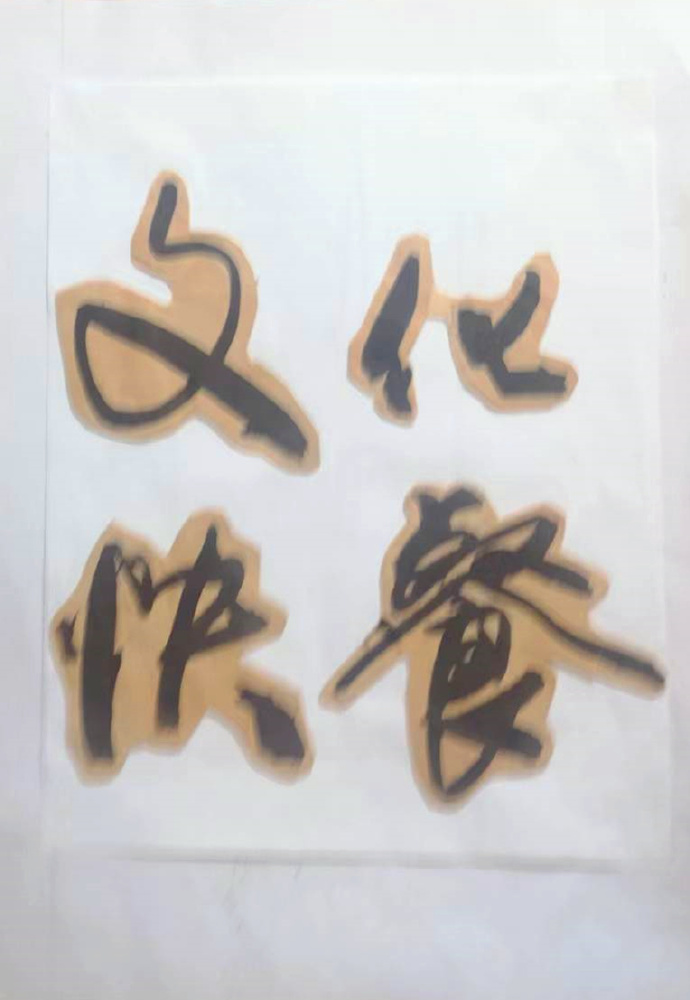 文化
快餐